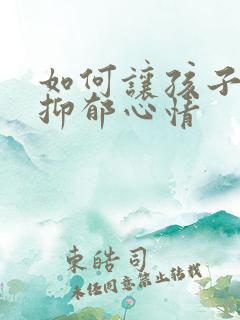 如何讓孩子
抑郁心情
東皓司
未经同意禁止转载